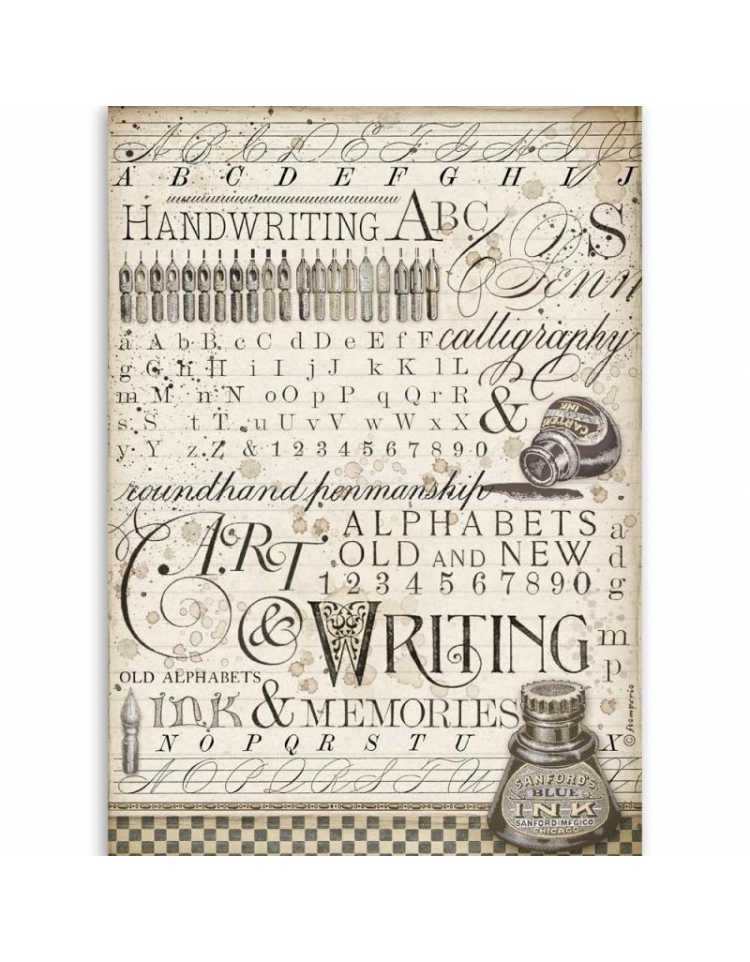 A B C D E F G H I J
A B C D E F G H I J
HANDWRITING ABC S
Penn
a A b B c C d D e E f F calligraphy
g G h H i I j J k K l L
m M n N o O p P q Q r R &
s S t T u U v V w W x X
y Y z Z & 1 2 3 4 5 6 7 8 9 0
CARTER
INK
roundhand penmanship
ART
ALPHABETS
OLD AND NEW
1 2 3 4 5 6 7 8 9 0
a
d
g
& WRITING
m
p
OLD ALPHABETS
INK & MEMORIES
© Stamperia
N O P Q R S T U X
N O P Q R S T U
SANFORD'S
BLUE
INK
SANFORD MFG CO
CHICAGO